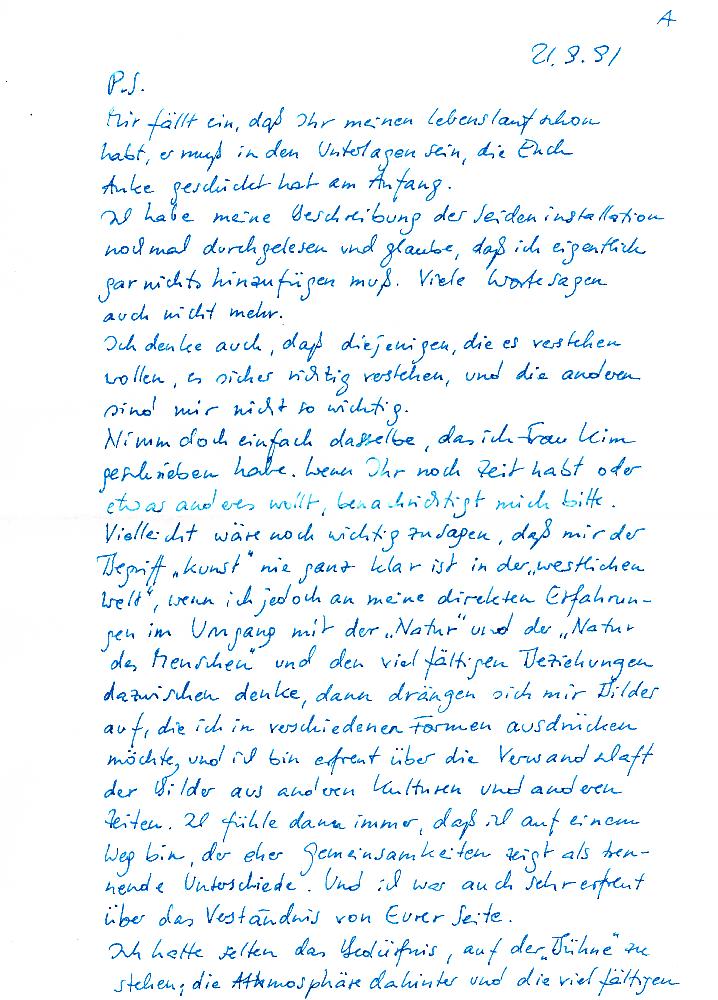 A
21.9.91
P.S.
Mir fällt ein, daß Ihr meinen Lebenslauf schon
habt, er muß in den Unterlagen sein, die Euch
Anke geschickt hat am Anfang.
Ich habe meine Beschreibung der Seideninstallation
nochmal durchgelesen und glaube, daß ich eigentlich
gar nichts hinzufügen muß. Viele Worte sagen
auch nicht mehr.
Ich denke auch, daß diejenigen, die es verstehen
wollen, es sicher richtig verstehen, und die anderen
sind mir nicht so wichtig.
Nimm doch einfach dasselbe, das ich Frau Kim
geschrieben habe. Wenn Ihr noch Zeit habt oder
etwas anderes wollt, benachrichtigt mich bitte.
Vielleicht wäre noch wichtig zu sagen, daß mir der
Begriff „Kunst" nie ganz klar ist in der „westlichen
Welt", wenn ich jedoch an meine direkten Erfahrun-
gen im Umgang mit der „Natur" und der „Natur
des Menschen" und den vielfältigen Beziehungen
dazwischen denke, dann drängen sich mir Bilder
auf, die ich in verschiedenen Formen ausdrücken
möchte, und ich bin erfreut über die Verwandschaft
der Bilder aus anderen Kulturen und anderen
Zeiten. Ich fühle dann immer, daß ich auf einem
Weg bin, der eher Gemeinsamkeiten zeigt als tren-
nende Unterschiede. Und ich war auch sehr erfreut
über das Verständnis von Eurer Seite.
Ich hatte selten das Bedürfnis, auf der „Bühne" zu
stehen; die Athmosphäre dahinter und die vielfältigen